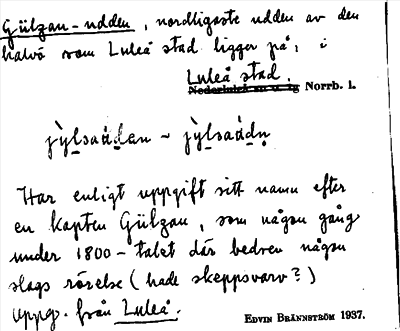 Gülzau-udden, nordligaste udden av den
halvö som Luleå stad ligger på; i
Luleå stad. Norrb. l.
Har enligt uppgift sitt namn efter
en kapten Gülzau, som någon gång
under 1800-talet där bedrev någon
slags rörelse (hade skeppsvarv?)
Uppg. från Luleå.
EDVIN BRÄNNSTRÖM 1937.